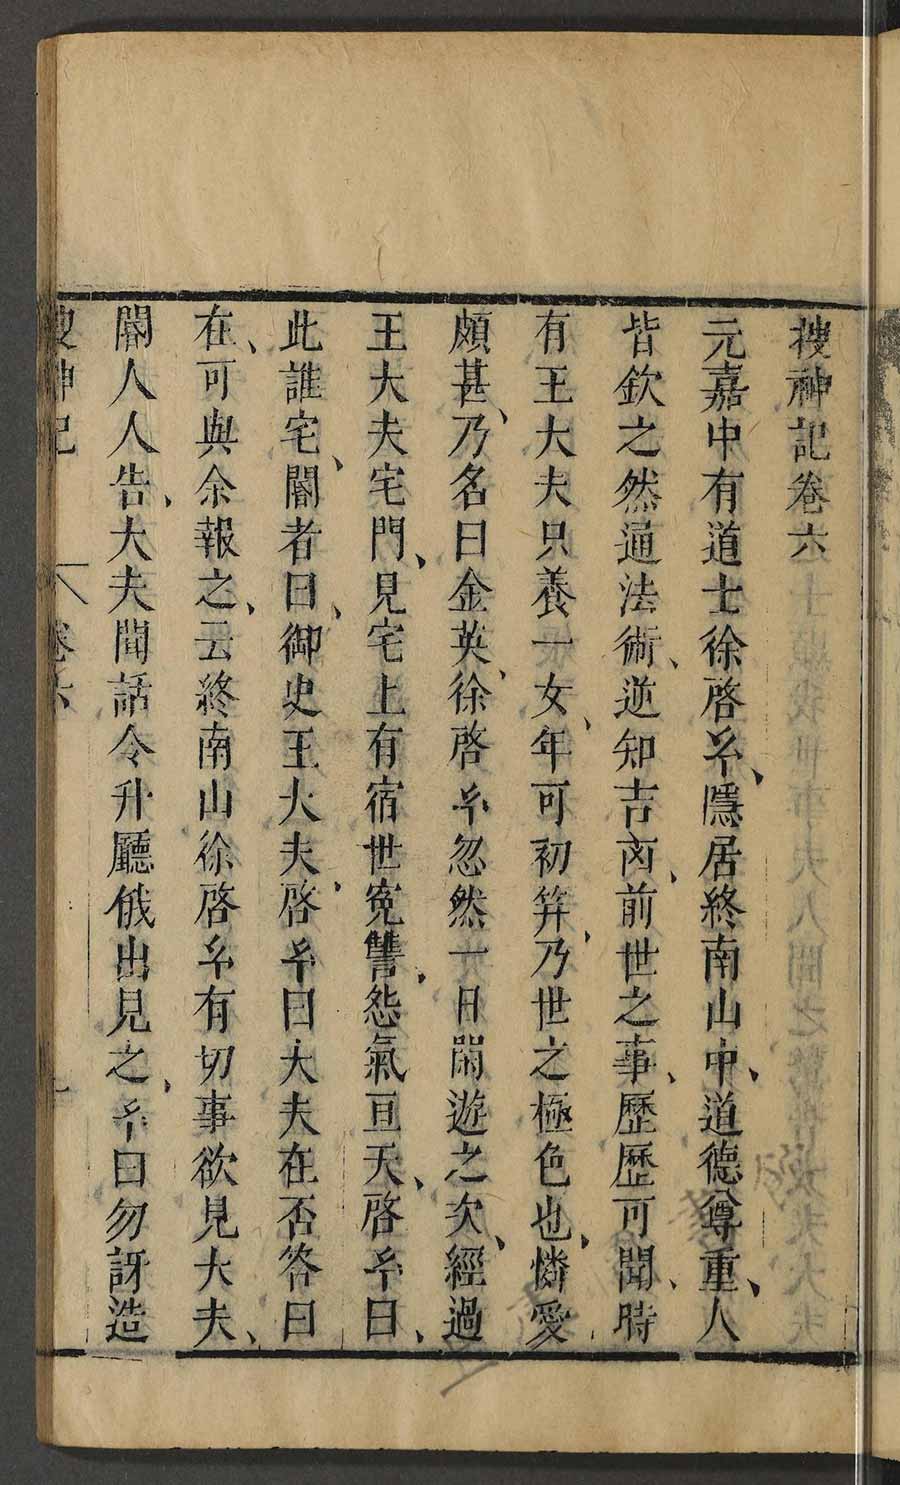 搜神記卷六
元嘉中有道士徐啓玄、隱居終南山中、道德尊重、人
皆欽之然通法術、逆知吉凶、前世之事、歷歷可聞、時
有王大夫只養一女、年可初笄、乃世之極色也、憐愛
頗甚、乃名曰金英、徐啓玄忽然一日閑遊之次、經過
王大夫宅門、見宅上有宿世寃讐、怨氣亘天、啓玄曰、
此誰宅、閽者曰、御史王大夫、啓玄曰大夫在否答曰
在、可與余報之、云終南山徐啓玄有切事欲見大夫、
閽人人告、大夫聞話令升廳俄出見之、玄曰勿訝造
搜神記 卷六